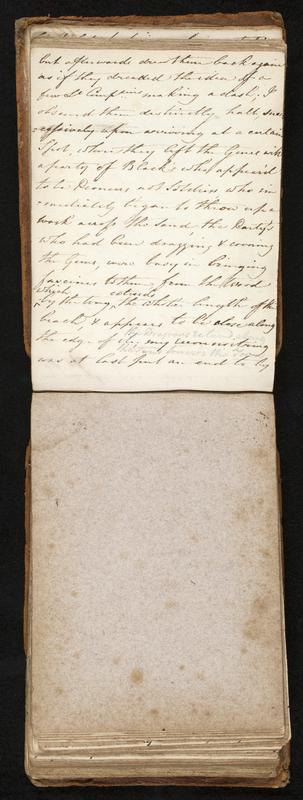 but afterwards drew them back again
as if they dreaded the idea of a
few Lt Companies making a dash; I
observed them distinctly halt, suc-
-cessively upon arriving at a certain
Spot, when they left the Guns with
a party of Blacks who appeared
to be Pioneers not Soldiers who im
mediately began to throw up a
work across the Sand, the Partys
who had been dragging & covering
the Guns, were busy in bringing
fascines to them from the Wood
which extends
by the way, the whole length of the
beach, & appears to be close along
the edge of it; my reconnoitring
was at last put an end to by